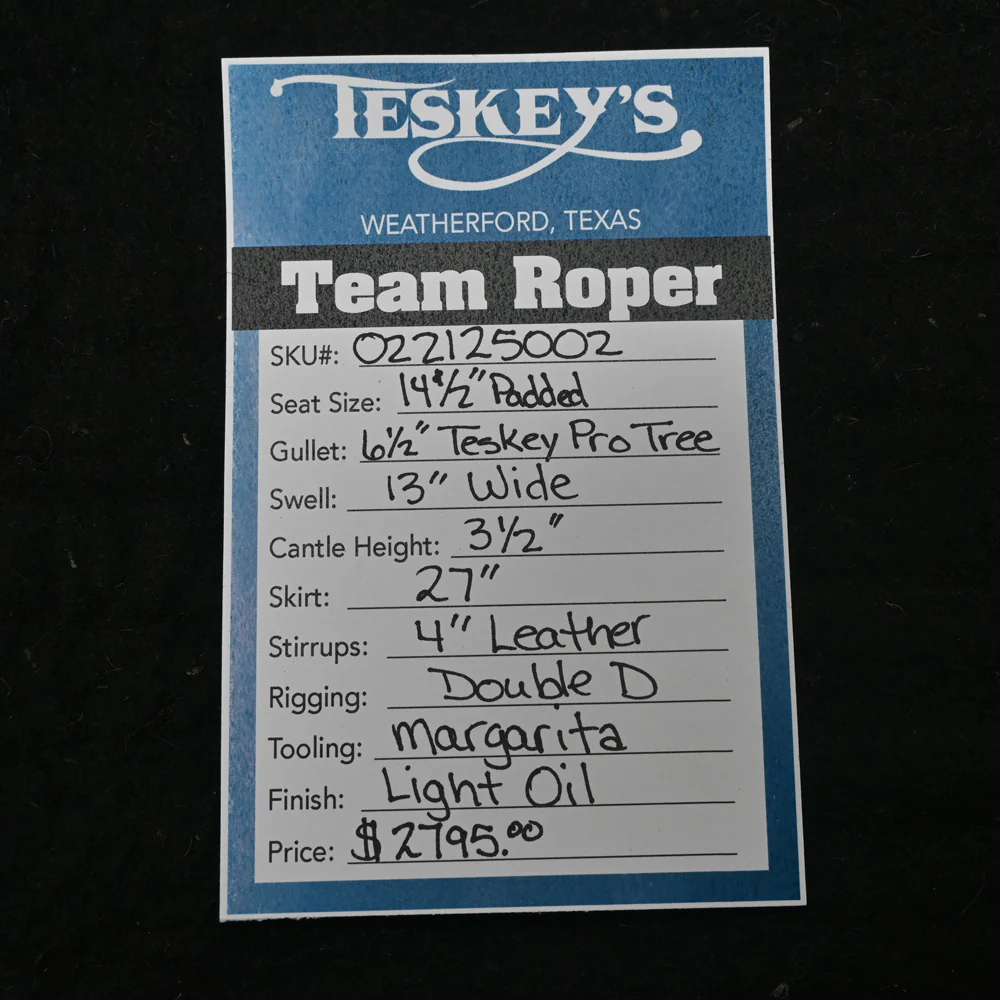 TESKEY'S
WEATHERFORD, TEXAS
Team Roper
SKU#: 022125002
Seat Size: 14 1/2" Padded
Gullet: 6 1/2" Teskey Pro Tree
Swell: 13" Wide
Cantle Height: 3 1/2"
Skirt: 27"
Stirrups: 4" Leather
Rigging: Double D
Tooling: Margarita
Finish: Light Oil
Price: $2795.00